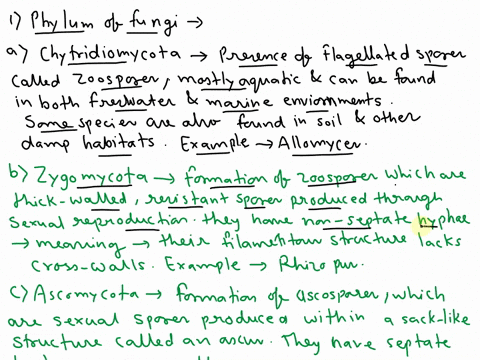 1) Phylum of fungi →
a) Chytridiomycota → Presence of flagellated spores
called zoospores, mostly aquatic & can be found
in both freshwater & marine enviornments.
Some species are also found in soil & other
damp habitats. Example → Allomyces.
b) Zygomycota → formation of zoospores which are
thick-walled, resistant spores produced through
sexual reproduction. They have non-septate hyphae
→ meaning → their filamentous structure lacks
cross-walls. Example → Rhizopus.
c) Ascomycota → formation of ascospores, which
are sexual spores produced within a sack-like
structure called an ascus. They have septate